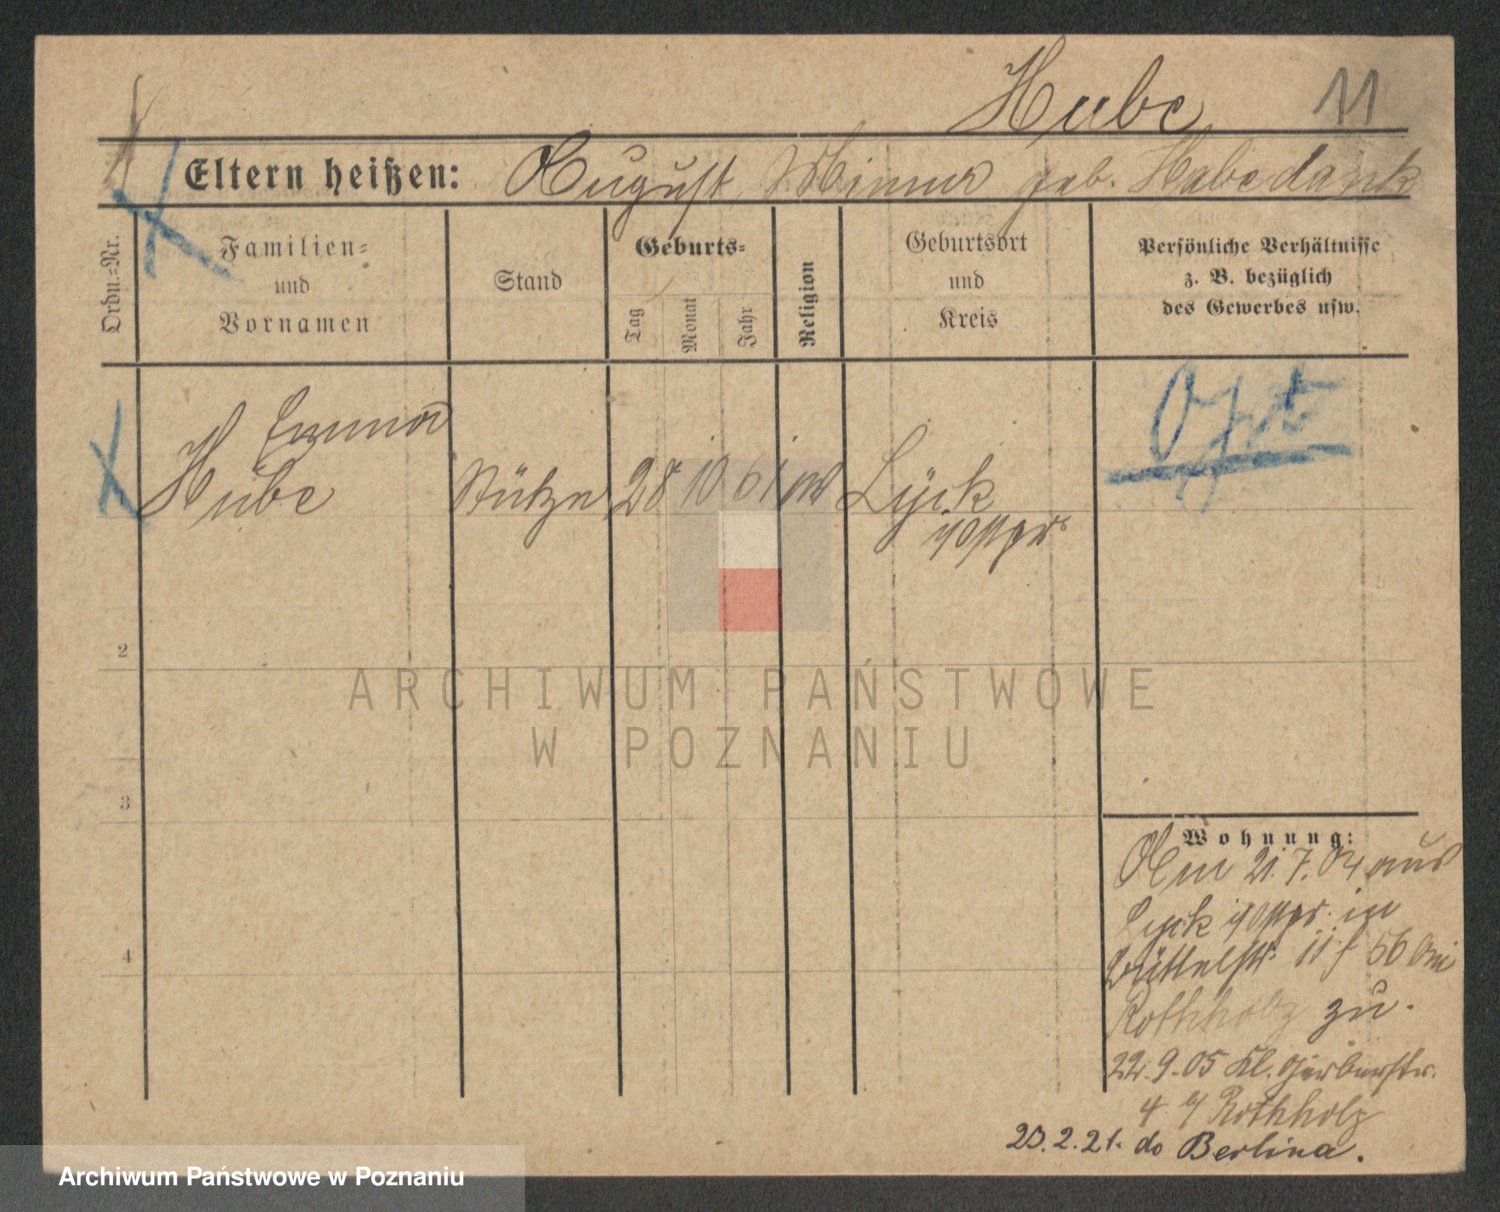 Hube 11
Eltern heißen: August, Minna geb. Habedank
Ordn.=Nr.
Familien=
und
Vornamen
Stand
Geburts=
Tag
Monat
Jahr
Religion
Geburtsort
und
Kreis
Persönliche Verhältnisse
z. B. bezüglich
des Gewerbes usw.
Opt
Emma
Hube Stütze 28 10 61 Lyck
2
3
4
Wohnung:
Am 21.7.04 aus
Lyck in
Büttelstr. 11 bei
Rothholz zu.
22.9.05 Kl. Gerberstr.
4 Rothholz
23.2.21. do Berlina.
ARCHIWUM PAŃSTWOWE
W POZNANIU
Archiwum Państwowe w Poznaniu